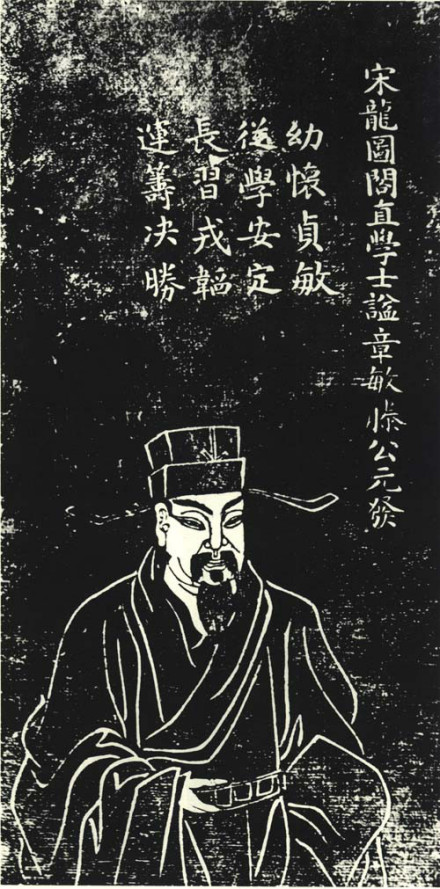 宋龍圖閣直學士諡章敏滕公元發
幼懷貞敏
從學安定
長習戎韜
運籌決勝